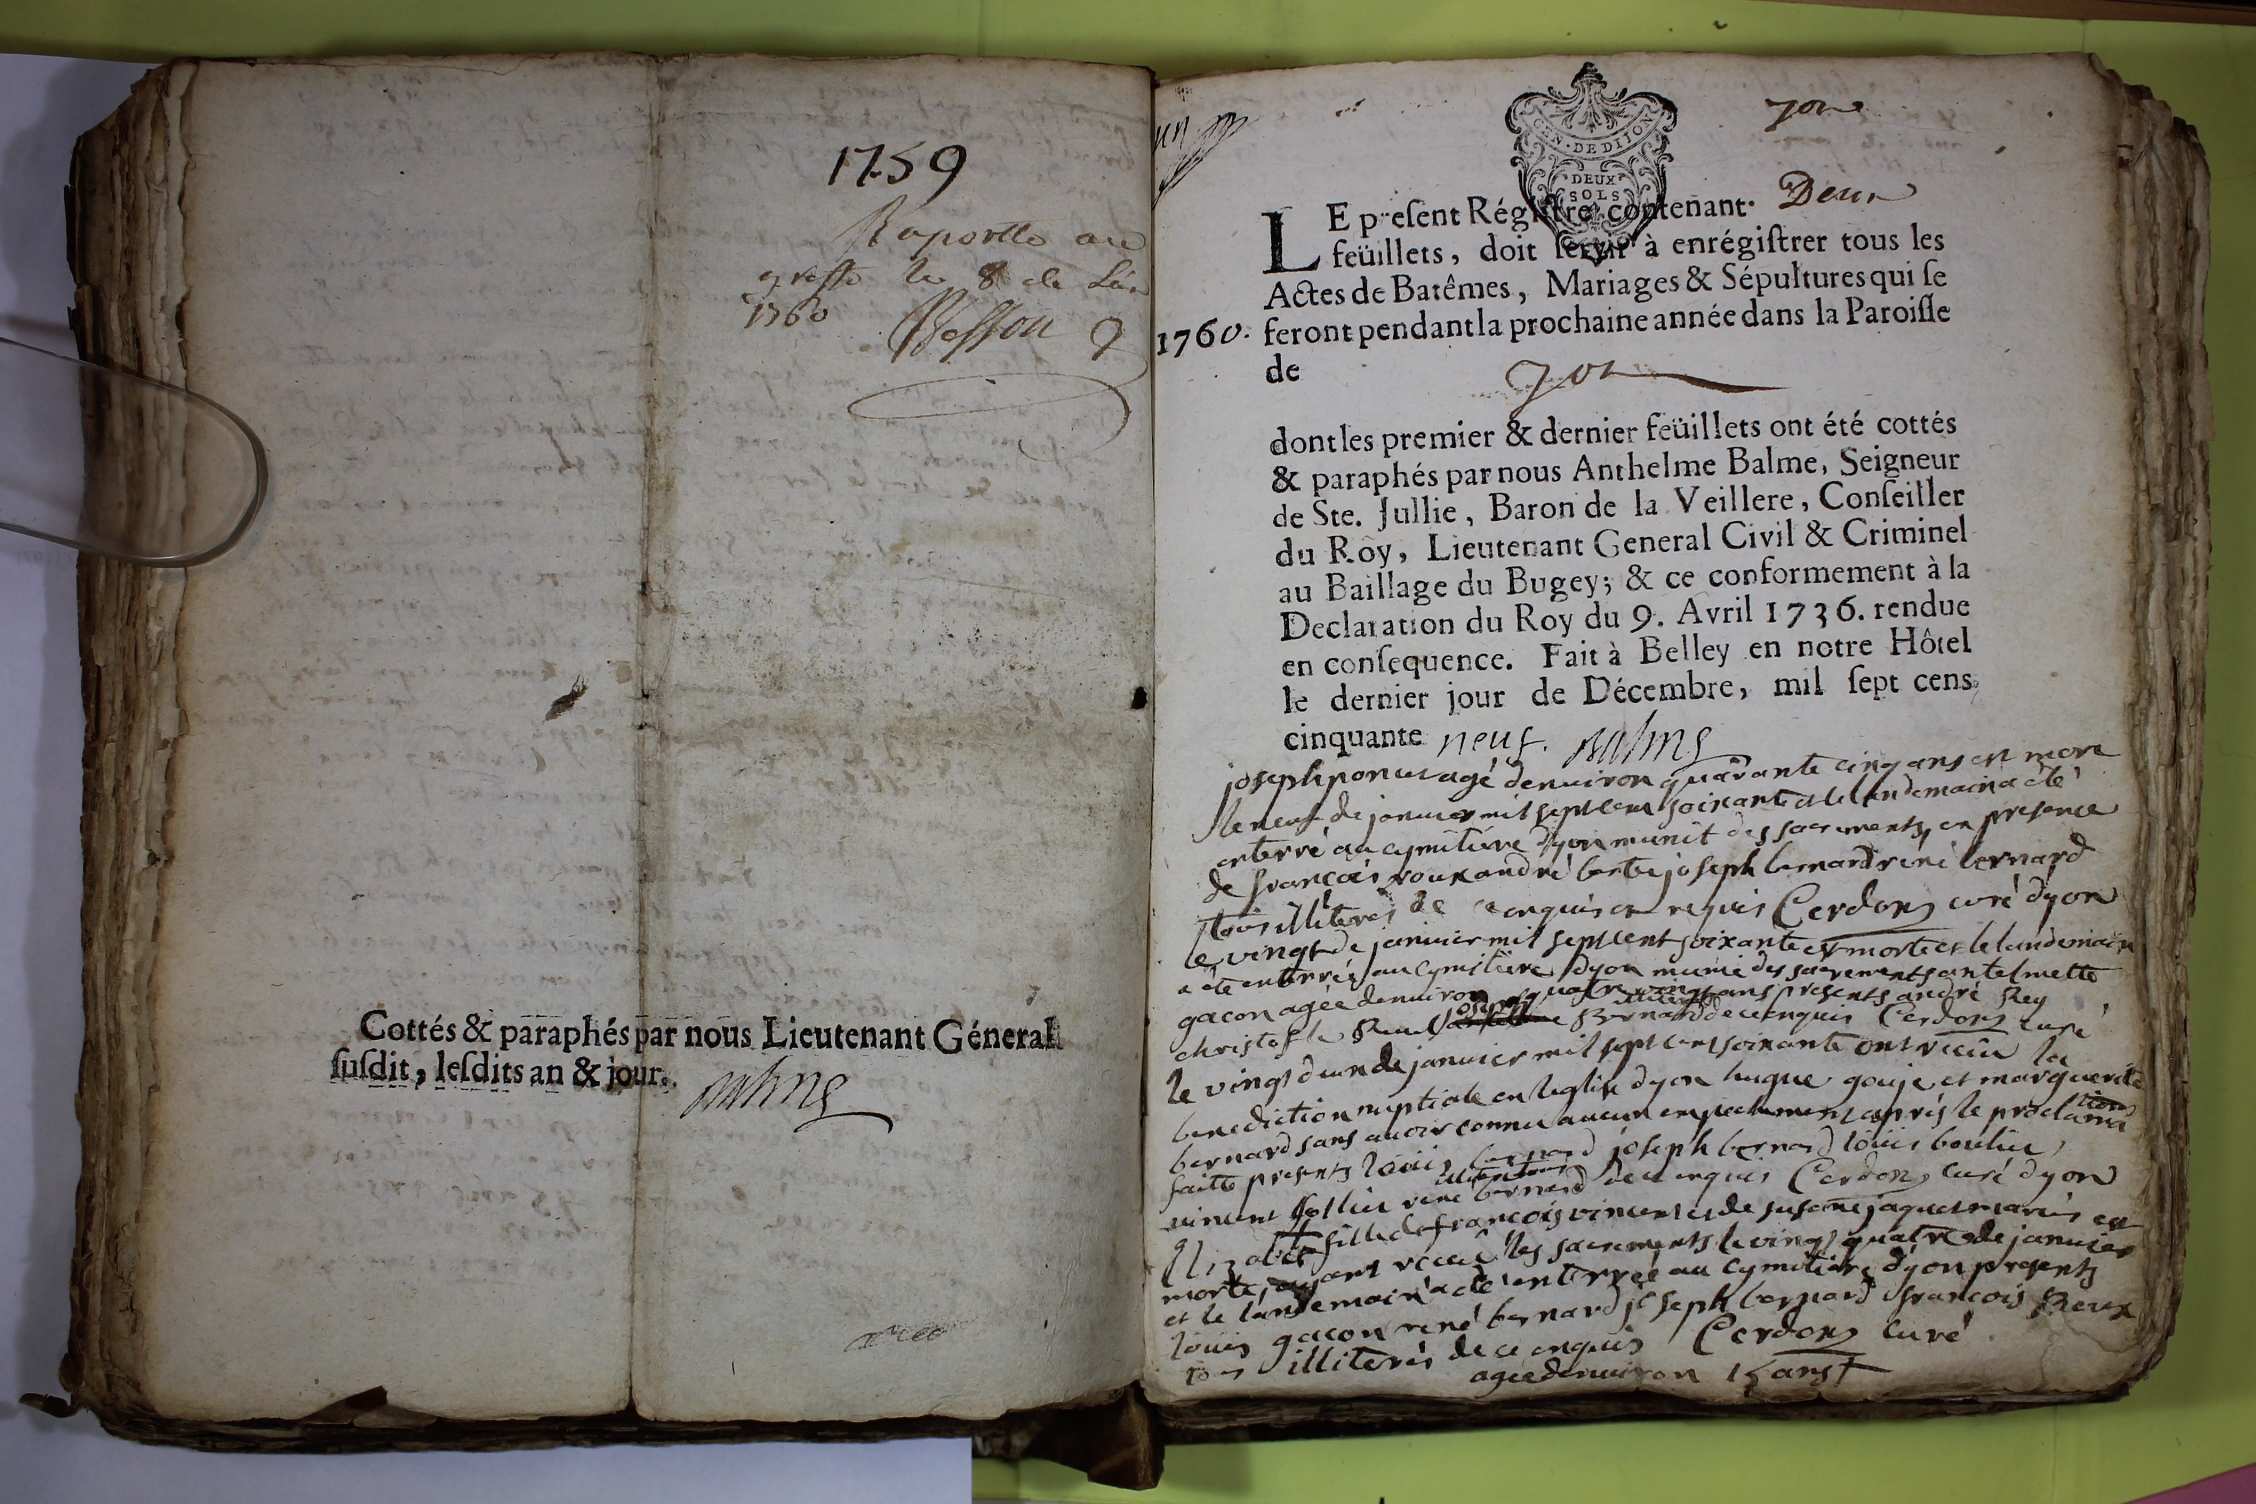 1759
Raportto au
greffe le 8 de
1760 Besson
Cottés & paraphés par nous Lieutenant Géneral
susdit, lesdits an & jour.
Balme
un
yon
GEN. DE DIJON
DEUX
SOLS
LE present Régistre contenant Deux
feüillets, doit servir à enrégistrer tous les
Actes de Batêmes, Mariages & Sépultures qui se
1760. feront pendant la prochaine année dans la Paroisse
de yon
dont les premier & dernier feüillets ont été cottés
& paraphés par nous Anthelme Balme, Seigneur
de Ste. Jullie, Baron de la Veillere, Conseiller
du Roy, Lieutenant General Civil & Criminel
au Baillage du Bugey; & ce conformement à la
Declaration du Roy du 9. Avril 1736. rendue
en consequence. Fait à Belley en notre Hôtel
le dernier jour de Décembre, mil sept cens
cinquante neuf. Balme
joseph poncet agé denuiron quarante cinq ans est mort
le neuf de januier mil sept cent soixante et le landemain a été
enterré au cymitiére dyon munit des sacrements en presence
de françois roux andré berte joseph bernard rené bernard
tous illiterés de ce enquis et requis Cerdon curé dyon
le vingt de januier mil sept cent soixante est morte et le landemain
a été enterrée au cymitiére dyon munie des sacrements antelmette
gacon agée denuiron quatre vingt ans presents andré Rey
christofle Roux joseph Bernard illiterés de ce enquis Cerdon curé
le vingt deux de januier mil sept cent soixante ont receu la
benediction nuptiale en leglise dyon hugue gouje et marguerite
bernard sans auoir connu aucun empechement aprés le proclamations
faitte presents louis bernard joseph bernard louis boulieu
uincent follieu rené bernard illiterés de ce enquis Cerdon curé dyon
Elizabet fille de françois uincent et de susane jaquet mariés est
morte, ayant receu les sacrements le vingt quatre de januier
et le landemain a été enterrée au cymitiére dyon presents
louis gacon rené bernard joseph bernard françois Reux
tous illiterés de ce enquis Cerdon curé
agée denuiron 15 ans